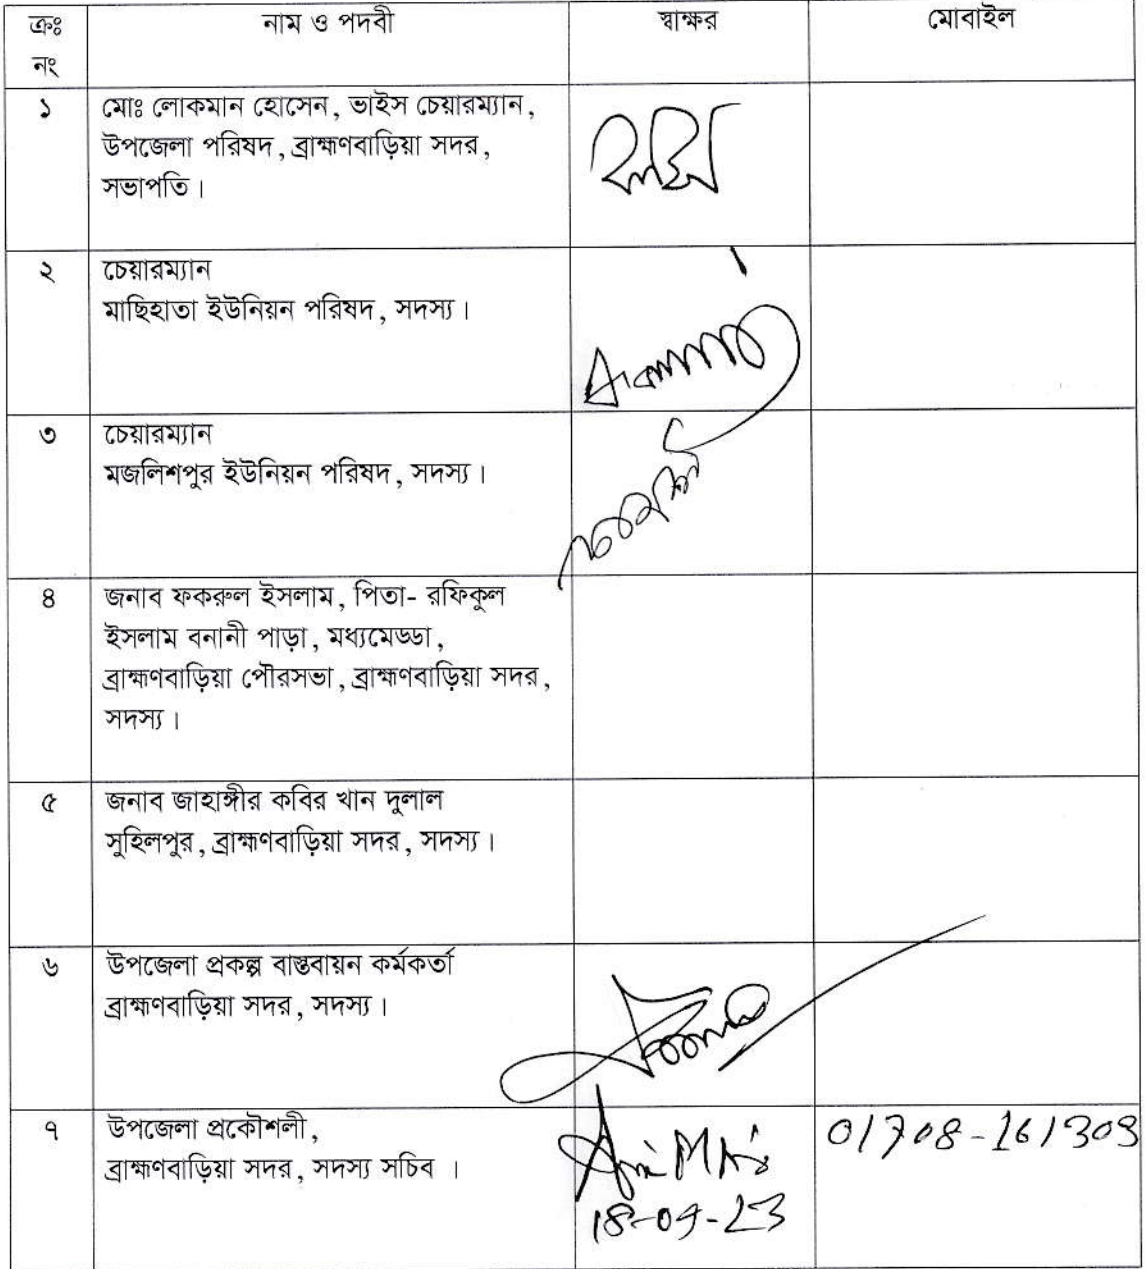 ক্রঃ নং নাম ও পদবী স্বাক্ষর মোবাইল
১ মোঃ লোকমান হোসেন, ভাইস চেয়ারম্যান,
উপজেলা পরিষদ, ব্রাহ্মণবাড়িয়া সদর,
সভাপতি।
২ চেয়ারম্যান
মাছিহাতা ইউনিয়ন পরিষদ, সদস্য।
৩ চেয়ারম্যান
মজলিশপুর ইউনিয়ন পরিষদ, সদস্য।
৪ জনাব ফকরুল ইসলাম, পিতা- রফিকুল
ইসলাম বনানী পাড়া, মধ্যমেড্ডা,
ব্রাহ্মণবাড়িয়া পৌরসভা, ব্রাহ্মণবাড়িয়া সদর,
সদস্য।
৫ জনাব জাহাঙ্গীর কবির খান দুলাল
সুহিলপুর, ব্রাহ্মণবাড়িয়া সদর, সদস্য।
৬ উপজেলা প্রকল্প বাস্তবায়ন কর্মকর্তা
ব্রাহ্মণবাড়িয়া সদর, সদস্য।
৭ উপজেলা প্রকৌশলী, 01708-161309
ব্রাহ্মণবাড়িয়া সদর, সদস্য সচিব ।
18-09-23